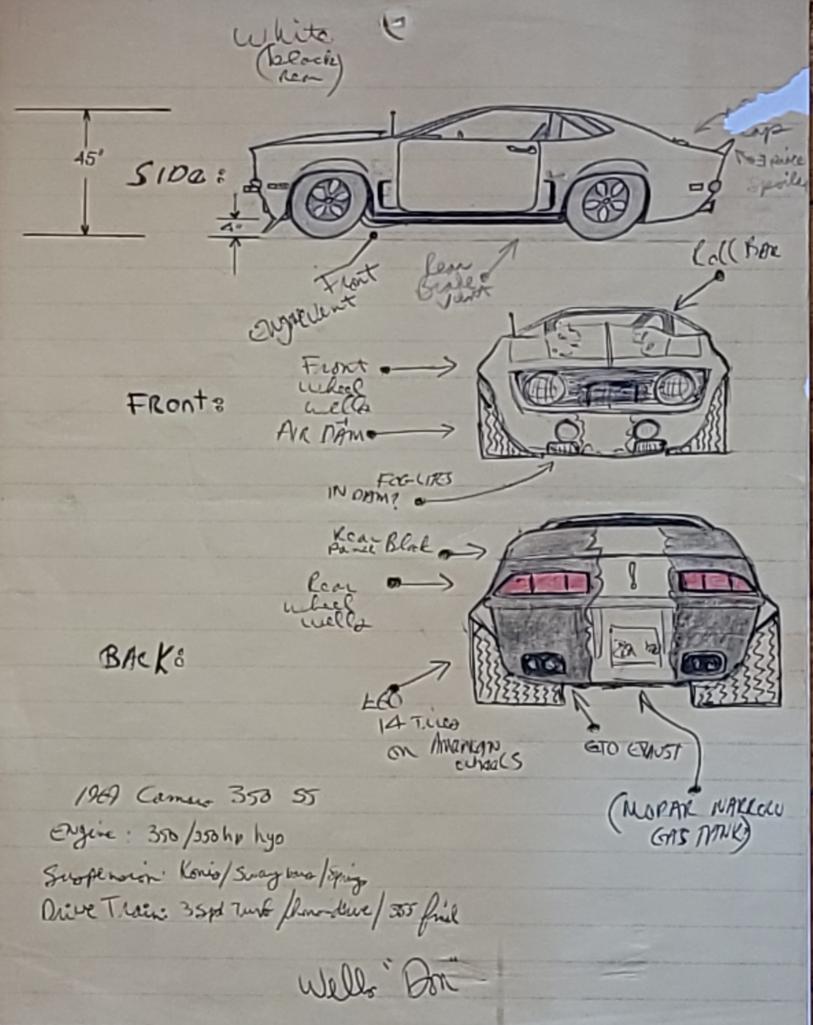 White
(black
45"
SIDE:
4"
3 piece
Spoiler
Front
Engine Vent
Rear
Brake
Vent
Roll Bar
Front
Wheel
Wells
FRONT:
AIR DAM
FOG-LITES
IN DAM?
Rear
Panel Black
Rear
Wheel
Wells
BACK:
L60
14 Tires
on American
wheels
GTO EXHAUST
(MOPAR NARROW
GAS TANK)
1969 Camaro 350 SS
Engine: 350/350hp hyd
Suspension: Konis/Sway bars/Springs
Drive Train: 3spd Turb / / 355 final
Wells "Don"